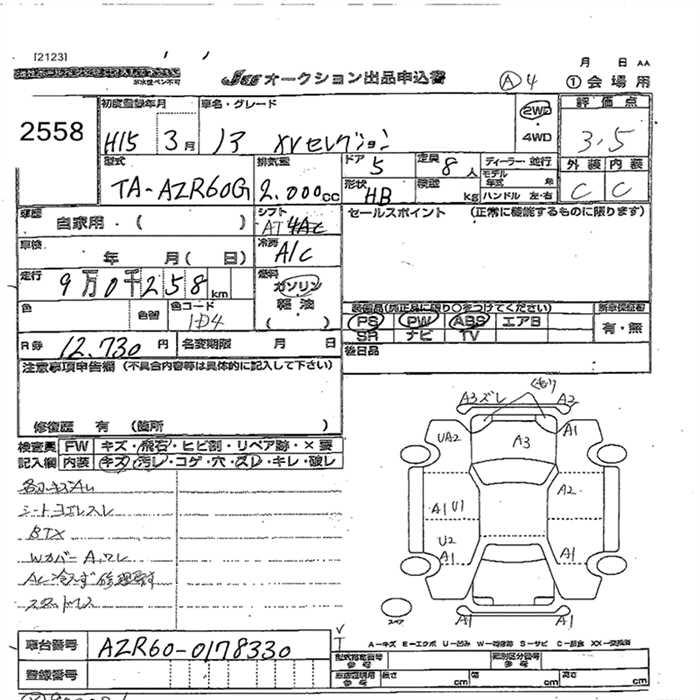 [2123]
月 日 AA
JAA オークション出品申込書
A 4 ①会場用
2558
初度登録年月 車名・グレード 2WD・4WD 評価点
H15 3月 13 XVセレクション 3.5
型式 排気量 ドア 5 定員 8人 ディーラー 並行 外装 内装
TA-AZR60G 2.000cc 形状 HB 積載 kg モデル年式 年 ハンドル 左・右 C C
車歴 自家用・( ) シフト AT 4Ac セールスポイント (正常に機能するものに限ります)
車検 年 月( 日) 冷房 A/C
走行 9万0千258km 燃料 ガソリン 軽油 ( )
色 色替 色コード 1D4
装備品(純正品に限り○をつけてください) 新車保証書
PS PW ABS エアB 有・無
SR ナビ TV
R券 12.730円 名変期限 月 日
後日品
注意事項申告欄 (不具合内容等は具体的に記入して下さい)
修復歴 有 (箇所 )
検査員 FW キズ・飛石・ヒビ割・リペア跡・×要
記入欄 内装 キズ・汚レ・コゲ・穴・スレ・キレ・破レ
シートヨゴレスレ
Wカバー A.ワレ
A3ズレ A2
UA2 A3 A1
A1 U1 A2
U2
A1 A1
A1 A1
スペア
車台番号 AZR60-0178330
登録番号
A-キズ E-エクボ U-凹み W-補修跡 S-サビ C-腐食 XX-交換済
型式指定番号 参考 類別区分番号 参考
車庫証明用 参考 長さ cm 幅 cm 高さ cm